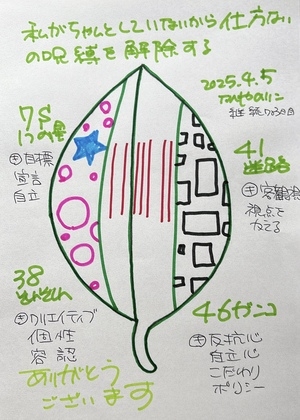 私がちゃんとしていないから仕方ない
の呪縛を解除する
2025.4.5
継続730日目
75
1つの星
㋖目標
宣言
自立
41
㋖客観的
視点を
38
㋖クリエイティブ
個性
容認
46ガンコ
㋖反抗心
自立心
こだわり
ポリシー
ありがとう
ございます